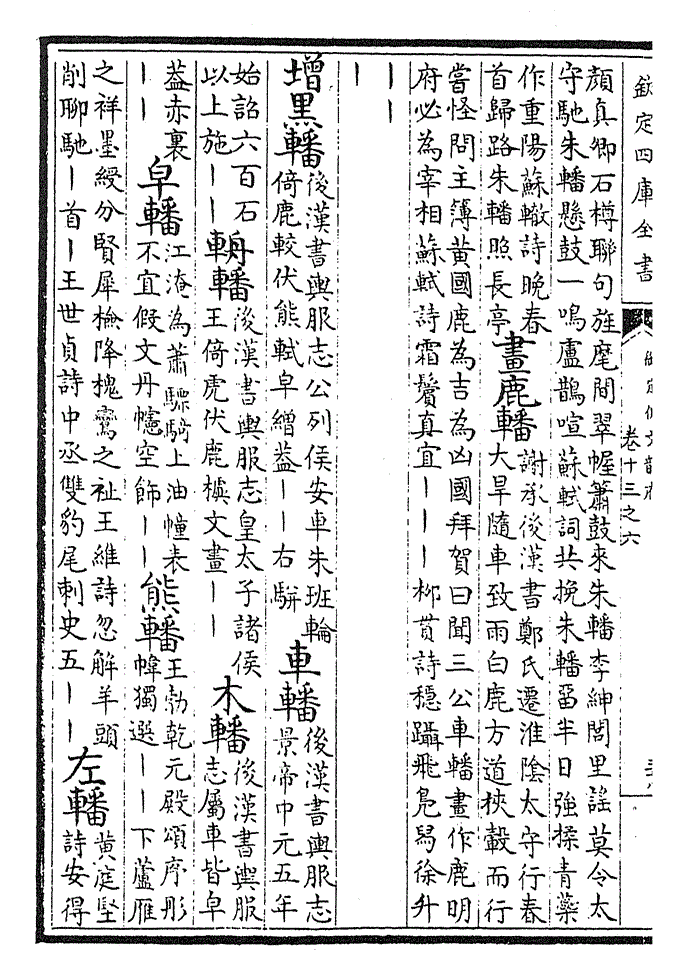 欽定四庫全書
御定佩文韻府
卷十三之六
顔真卿石樽聯句旌麾間翠幄簫鼓來朱轓李紳閭里謡莫令太
守馳朱轓懸鼓一鳴盧鵲喧蘇軾詞共挽朱轓留半日強揉青蘂
作重陽蘇轍詩晚春
首歸路朱轓照長亭
畫鹿轓
謝承後漢書鄭氏遷淮陰太守行春
大旱隨車致雨白鹿方道挾轂而行
當怪問主簿黄國鹿為吉為凶國拜賀曰聞三公車轓畫作鹿明
府必為宰相蘇軾詩霜鬢真宜｜｜｜柳貫詩穩躡飛鳧舄徐升
｜｜
｜
增黒轓
後漢書輿服志公列侯安車朱班輪
倚鹿較伏熊軾皁繒葢｜｜右騑
車轓
後漢書輿服志
景帝中元五年
始詔六百石
以上施｜｜
輈轓
後漢書輿服志皇太子諸侯
王倚虎伏鹿樴文畫｜｜
木轓
後漢書輿服
志屬車皆皁
葢赤裏
｜｜
皁轓
江淹為蕭驃騎上油幢表
不宜假文丹幰空飾｜｜
熊轓
王勃乾元殿頌序彤
幃獨選｜｜下蘆雁
之祥墨綬分賢犀檢降槐鸞之祉王維詩忽解羊頭
削聊馳｜首｜王世貞詩中丞雙豹尾刺史五｜｜
左轓
黄庭堅
詩安得